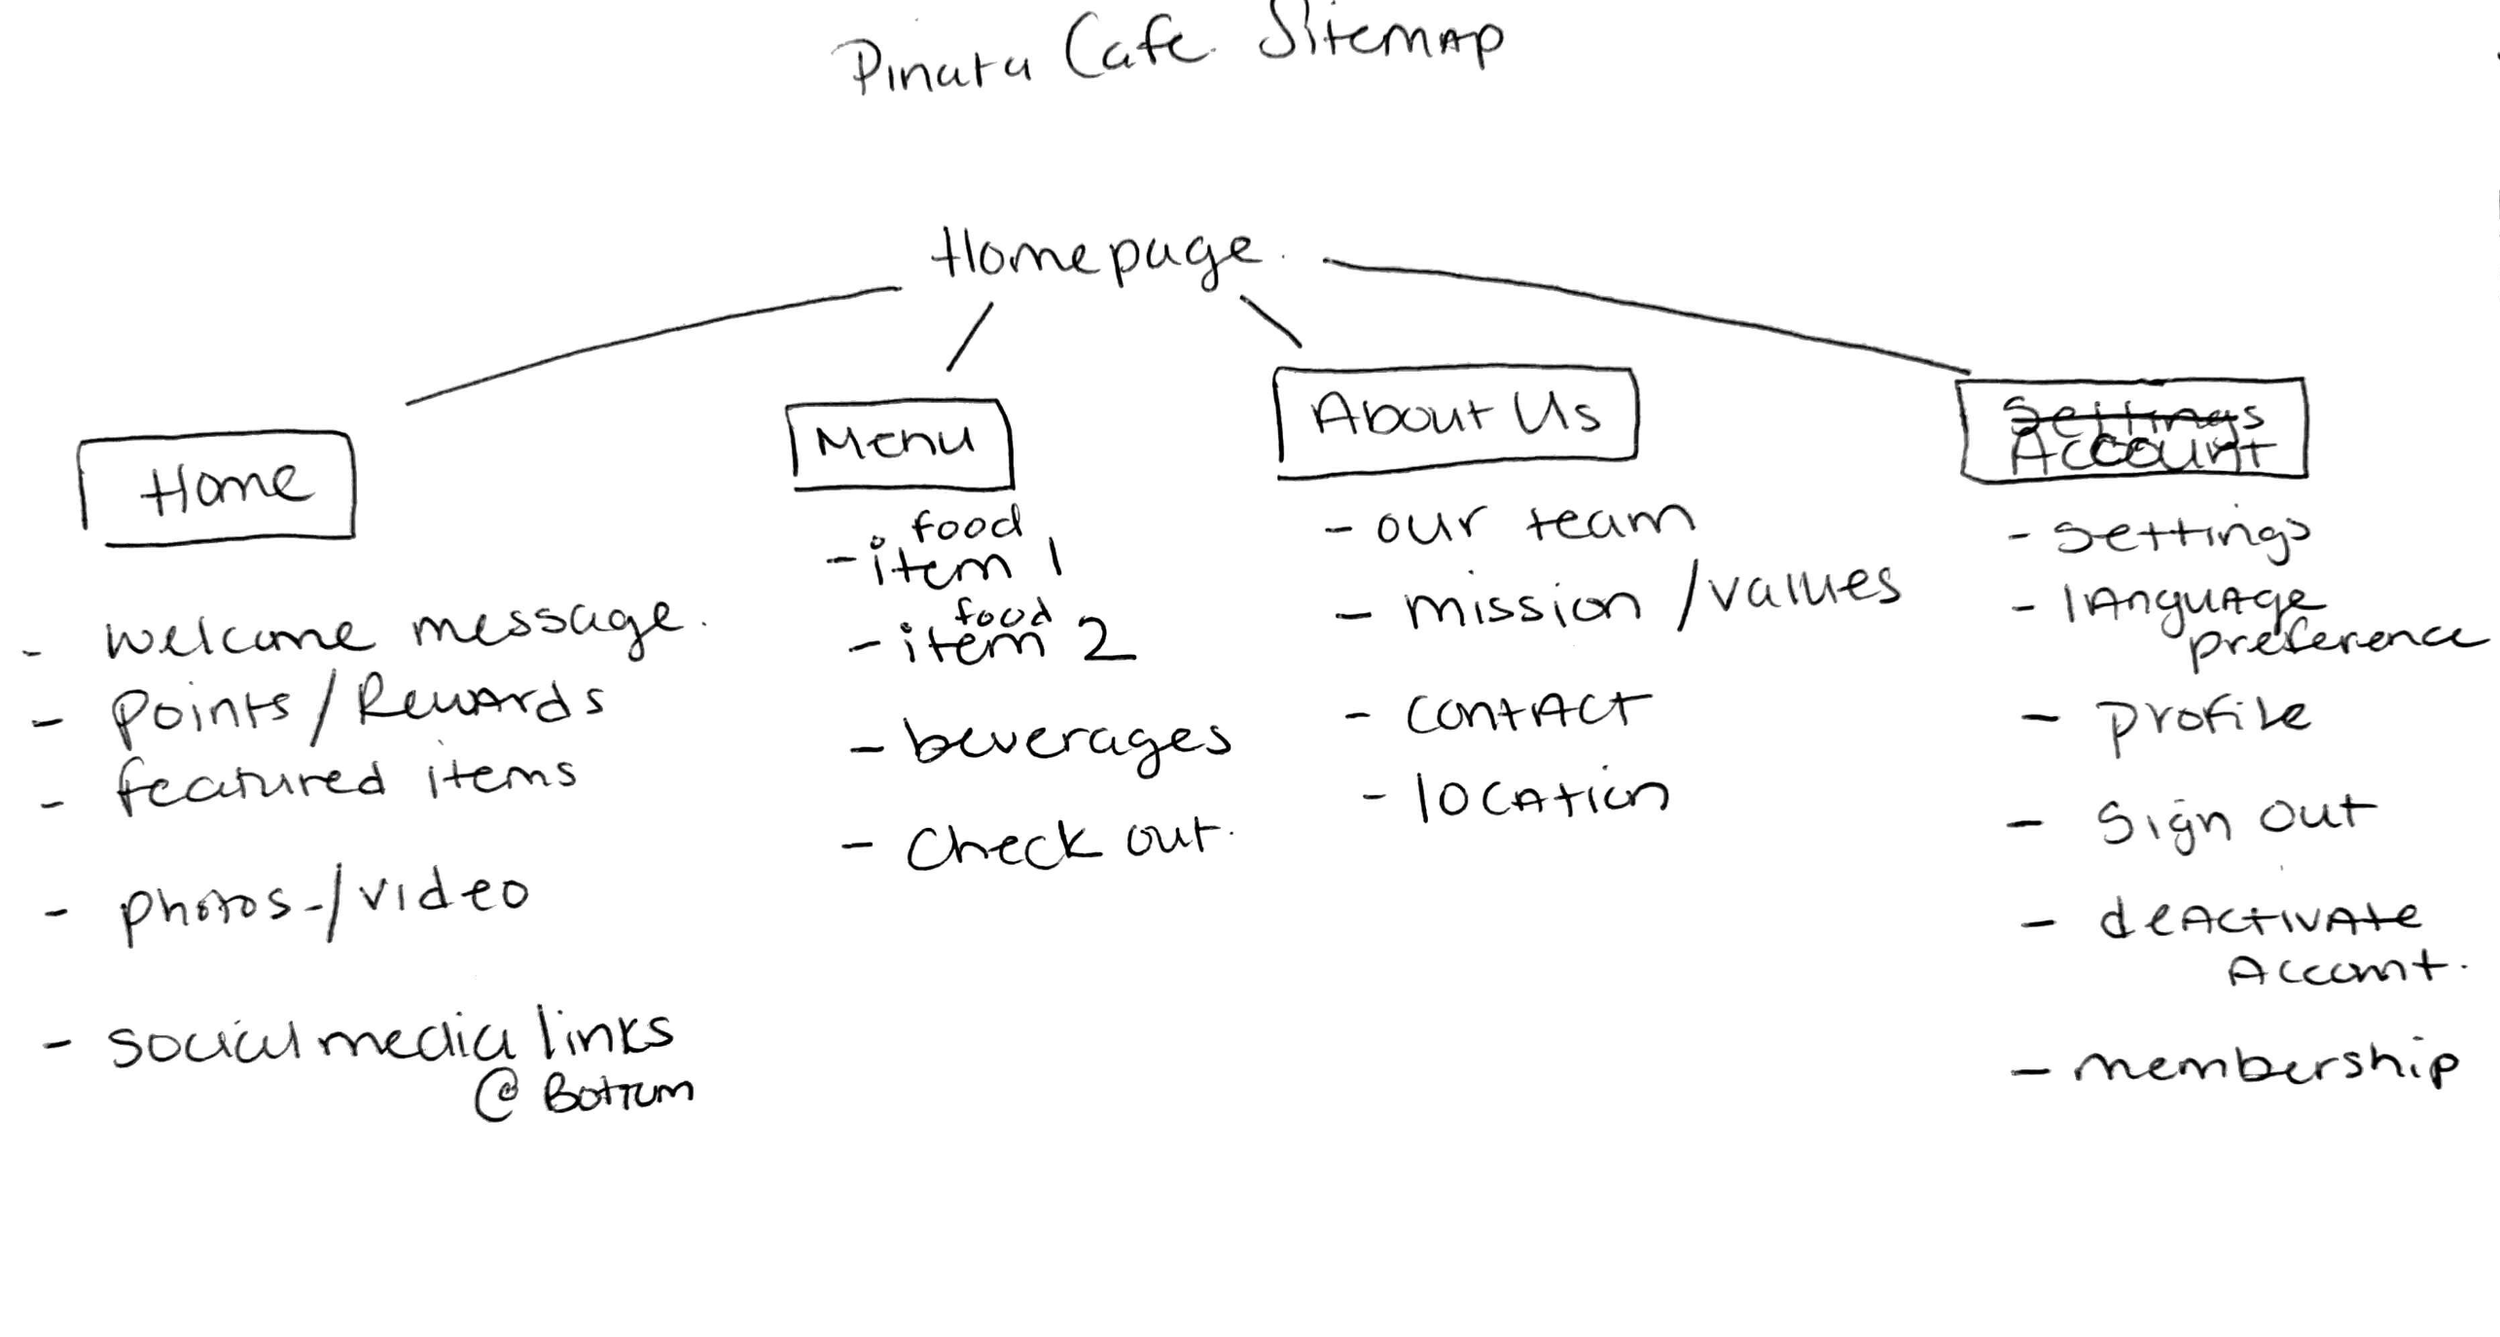 Pinata Cafe Sitemap
Homepage.
Home
- welcome message.
- points/Rewards
- featured items
- photos-/video
- social media links
@ Bottom
Menu
food
- item 1
food
- item 2
- beverages
- Check out.
About Us
- our team
- mission/values
- contact
- location
Settings
Account
- settings
- language
preference
- profile
- sign out
- deactivate
Account.
- membership